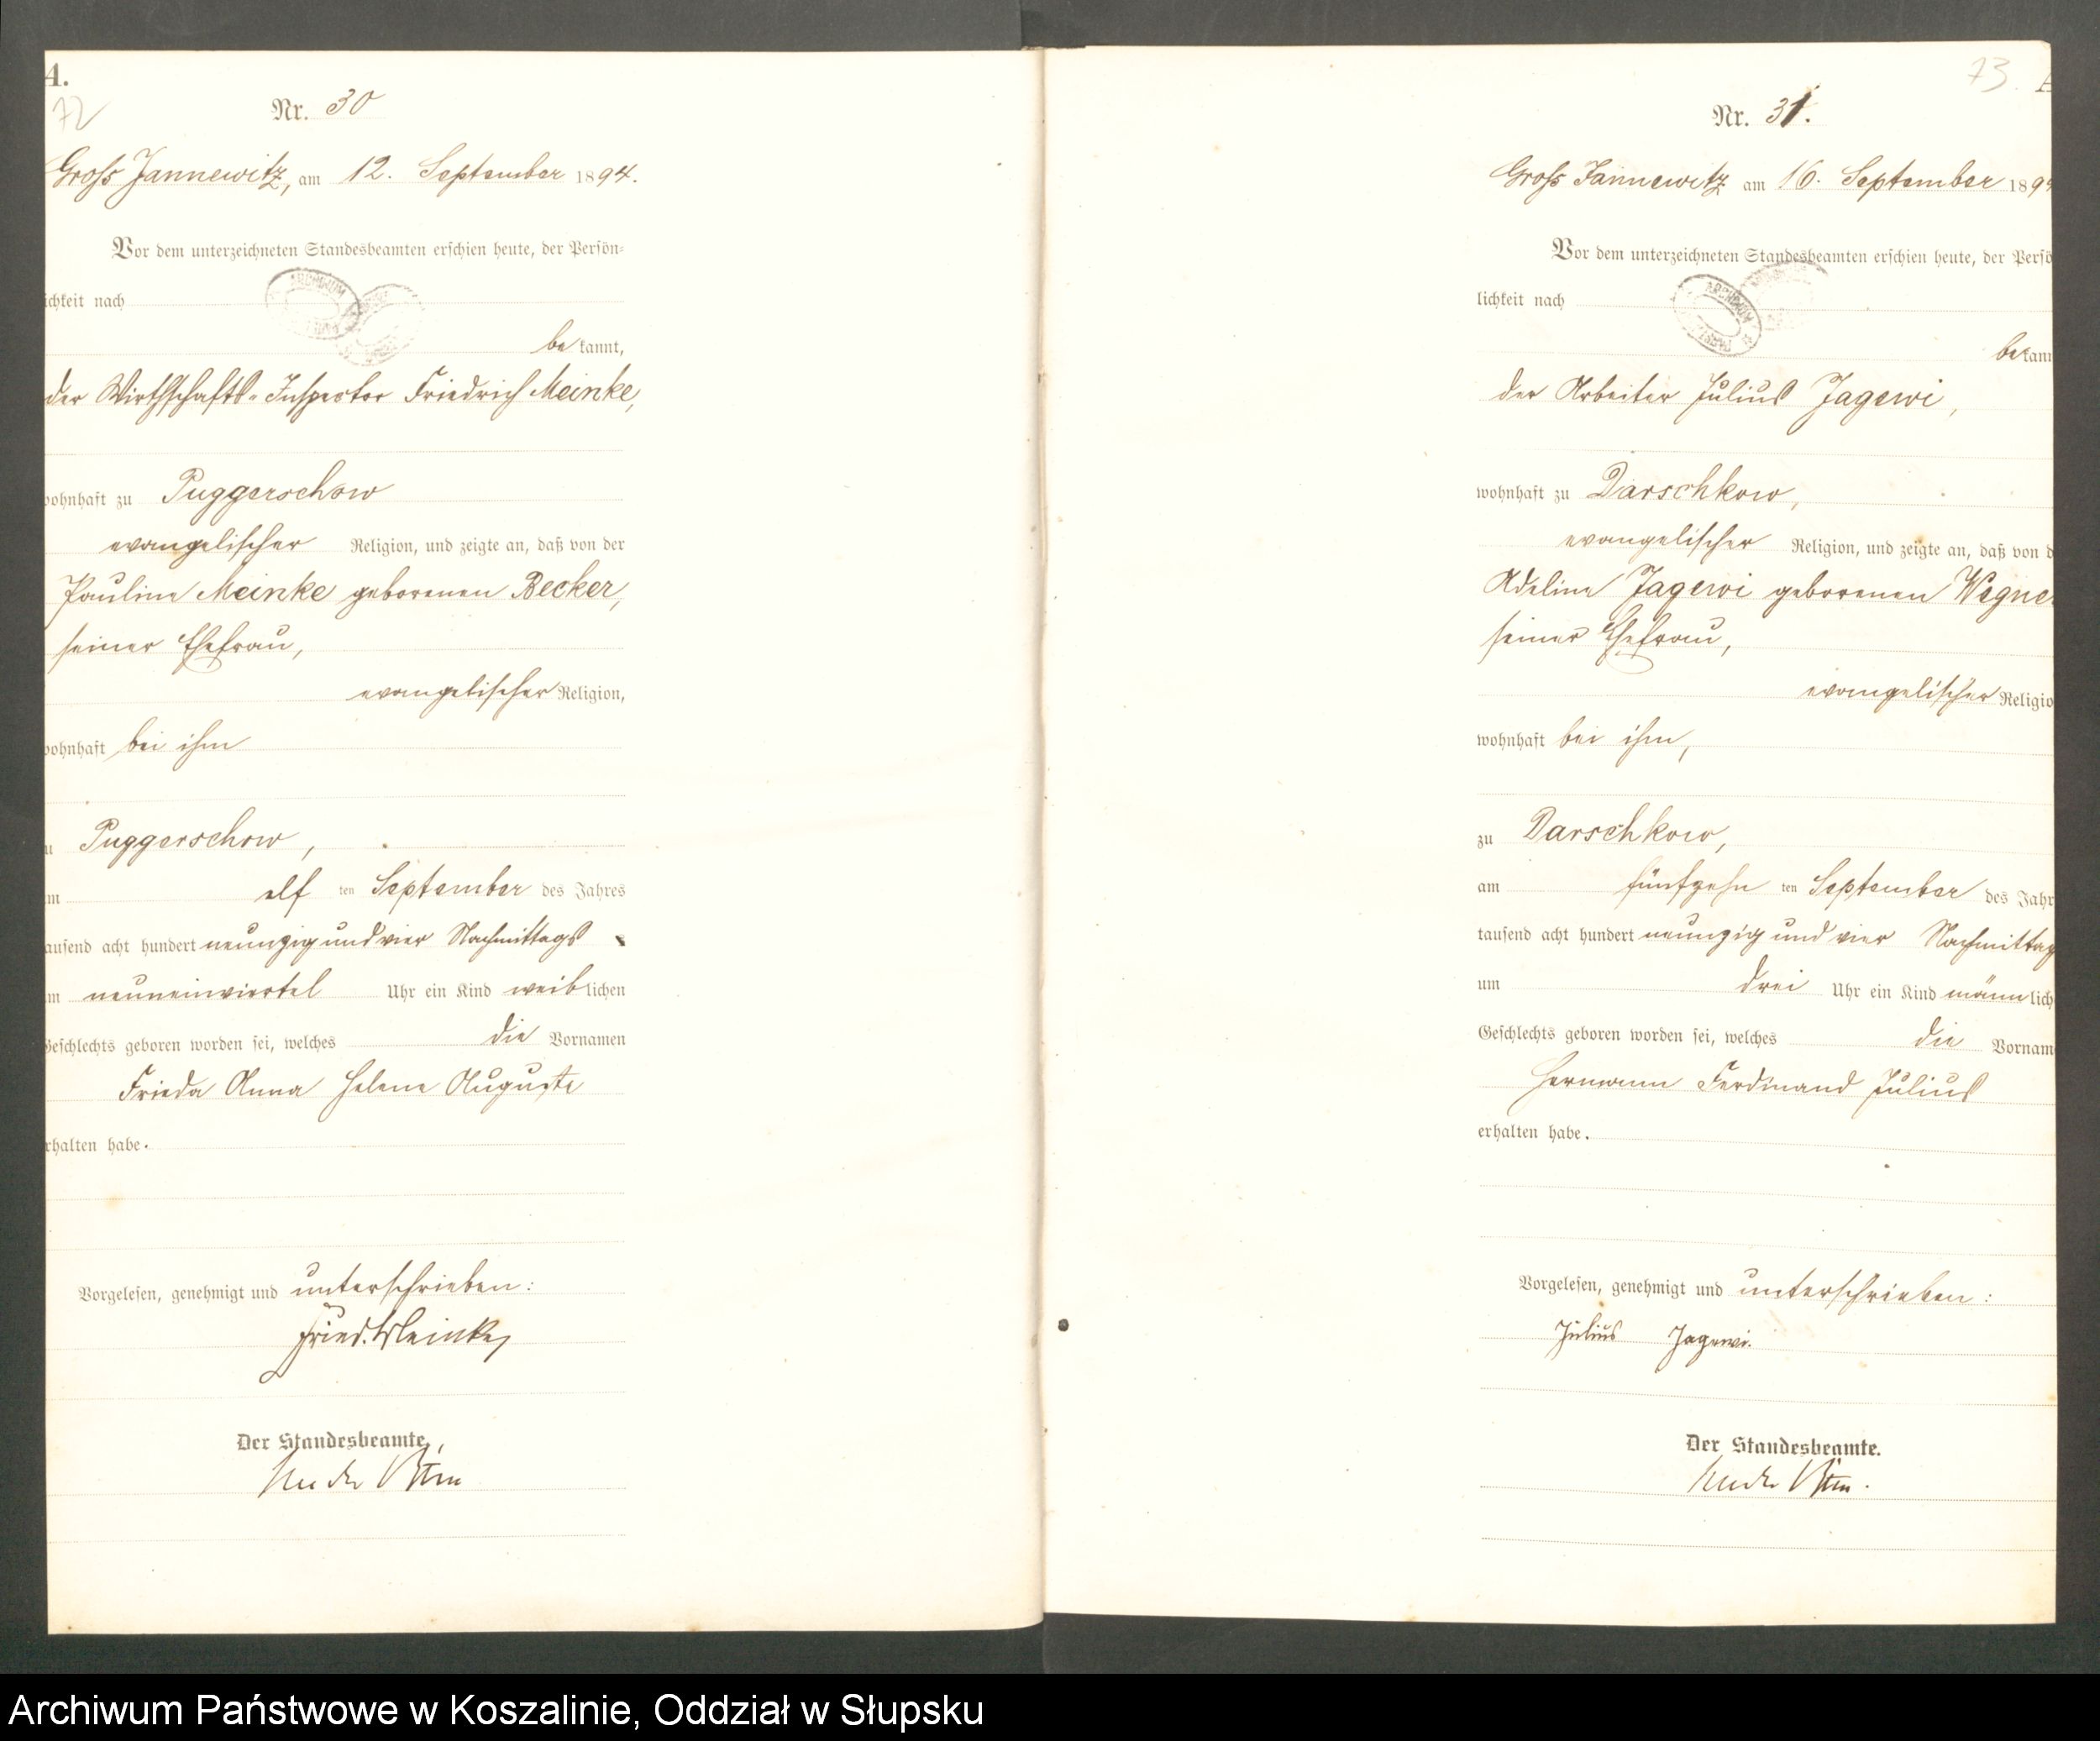 A.
72
Nr. 30
Gross Jannewitz, am 12. September 1894.
Vor dem unterzeichneten Standesbeamten erschien heute, der Persön-
ichkeit nach
bekannt,
der Wirthschafts-Inspector Friedrich Meinke,
wohnhaft zu Puggerschow
evangelischer Religion, und zeigte an, daß von der
Pauline Meinke geborenen Becker,
seiner Ehefrau,
evangelischer Religion,
wohnhaft bei ihm
u Puggerschow,
m elf ten September des Jahres
ausend acht hundert neunzig und vier Nachmittags
m neuneinviertel Uhr ein Kind weiblichen
Geschlechts geboren worden sei, welches die Vornamen
Frieda Anna Helene Auguste
rhalten habe.
Vorgelesen, genehmigt und unterschrieben:
Fried. Meinke
Der Standesbeamte,
73
Nr. 31.
Gross Jannewitz am 16. September 189
Vor dem unterzeichneten Standesbeamten erschien heute, der Persö
lichkeit nach
ARCHIWUM
bekann
der Arbeiter Julius Jagewi,
wohnhaft zu Darschkow,
evangelischer Religion, und zeigte an, daß von d
Adeline Jagewi geborenen Wegne
seiner Ehefrau,
evangelischer Religio
wohnhaft bei ihm,
zu Darschkow,
am fünfzehn ten September des Jahr
tausend acht hundert neunzig und vier Nachmittag
um drei Uhr ein Kind männlich
Geschlechts geboren worden sei, welches die Vornam
Hermann Ferdinand Julius
erhalten habe.
Vorgelesen, genehmigt und unterschrieben:
Julius Jagewi.
Der Standesbeamte.
Archiwum Państwowe w Koszalinie, Oddział w Słupsku